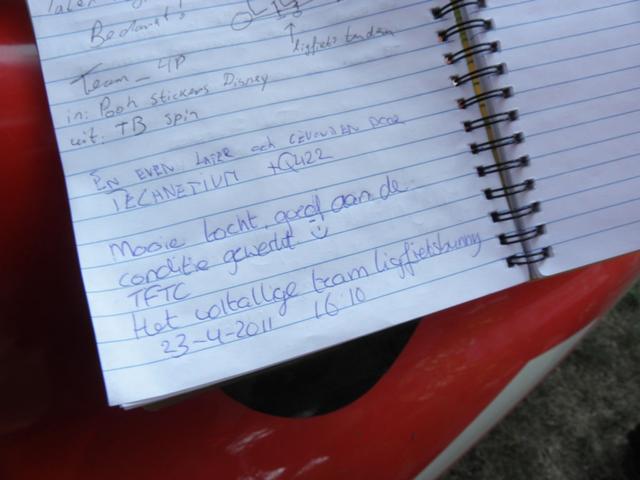 Bedankt!
ligfiets tandem
Team_4P
in: Pooh stickers Disney
uit: TB spin
EN EVEN LATER OOK GEVONDEN DOOR
TECHNETIUM +Q422
Mooie tocht, goed aan de
conditie gewerkt
TFTC
Het voltallige team ligfietsbunny
23-4-2011 16:10